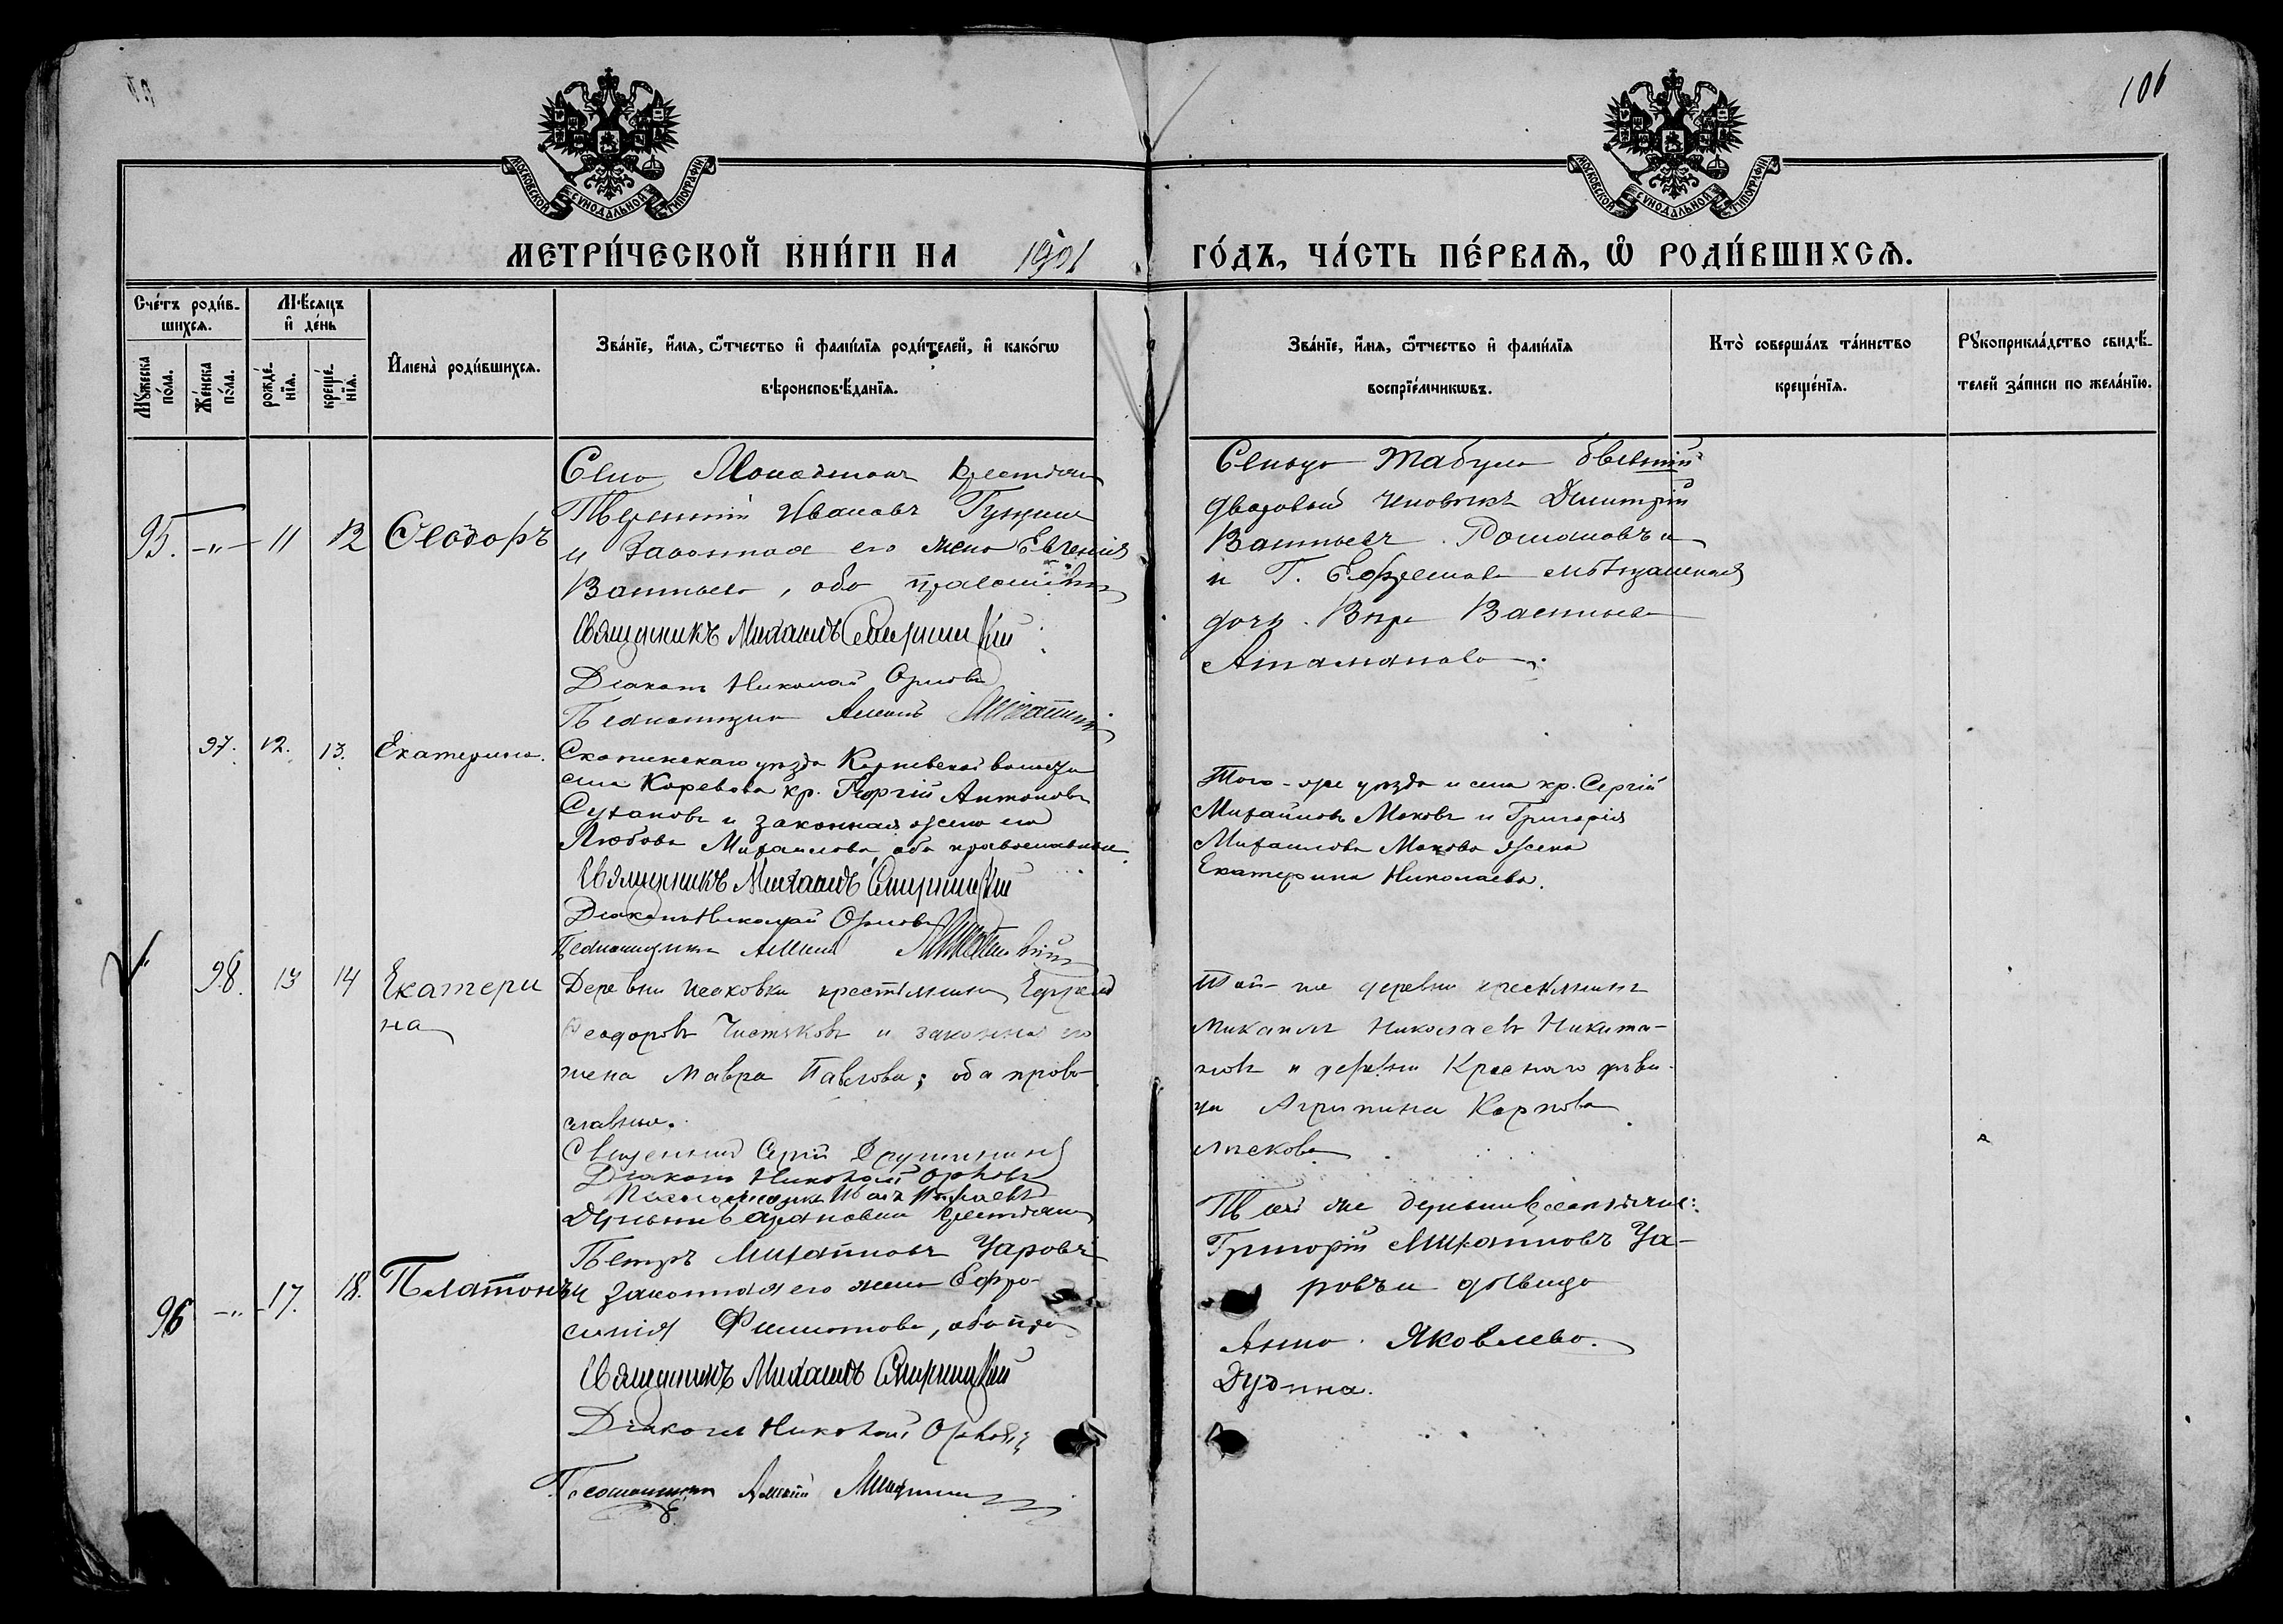 106
МОСКОВСКОЙ СѴНОДАЛЬНОЙ ТИПОГРАФІИ
МОСКОВСКОЙ СѴНОДАЛЬНОЙ ТИПОГРАФІИ
МЕТРИ́ЧЕСКОЙ КНИ́ГИ НА 1901 ГО́ДЪ, ЧА́СТЬ ПЕ́РВАЯ, Ѡ҆ РОДИ́ВШИХСЯ.
Сче́тъ роди́в-
шихся.
Мꙋ́жеска по́ла.
Же́нска по́ла.
Мѣ́сяцъ
и҆ де́нь
рожде́-
нїя.
креще́-
нїя.
И҆мена̀ роди́вшихся.
Зва́нїе, и҆́мя, ѻ҆́тчество и҆ фами́лїя роди́телей, и҆ како́гѡ
вѣроисповѣ́данїя.
Зва́нїе, и҆́мя, ѻ҆́тчество и҆ фами́лїя
воспрїе́мникѡвъ.
Кто̀ соверша́лъ та́инство
креще́нїя.
Рꙋкоприкла́дство свидѣ́-
телей за́писи по жела́нїю.
95. -„- 11 12 Ѳеодоръ
Село крестьян
Иванов
и законная его жена Евгенія
Васильева, оба православн
Священникъ Михаилъ
Діаконъ Николай Орлов
Псаломщик Алексей
Сельцо Табула бывшій
дворовый человѣкъ Димитрій
Васильевъ Романовъ и
и Г. Ефремова мѣщанская
дочь Вѣра Васильева
Атаманова.
97. 12. 13. Екатерина.
Скопинскаго уѣзда волости
села Коревова кр. Георгій Антоновъ
Сухановъ и законная жена его
Любовь Михаилова, оба православные.
Священникъ Михаилъ
Діаконъ Николай Орловъ
Псаломщикъ Алексей
Того-же уѣзда и села кр. Сергій
Михайловъ Моховъ и Григорія
Михаилова Мохова жена
Екатерина Николаева.
98. 13 14 Екатери
на
Деревни крестьянинъ
Ѳеодоровъ Чистяковъ и законная его
жена Мавра Павлова; оба право-
славные.
Священникъ Сергій
Діаконъ Николай Орловъ
Той-же деревни крестьянинъ
Михаилъ Николаевъ Никита-
новъ и деревни Краснаго дѣви-
ца Агрипина Карпова
Лискова
96 -„- 17. 18. Платонъ
Деревни крестьян
Петръ Михайловъ Уаровъ
и законная его жена Ефро-
синія Филиппова, оба пра
Священникъ Михаилъ
Діаконъ Николай Орловъ
Псаломщикъ Алексей
Той же деревни крестьянин:
Григорій Михайловъ Уа-
ровъ и дѣвица
Анна Яковлева.
Дудина.